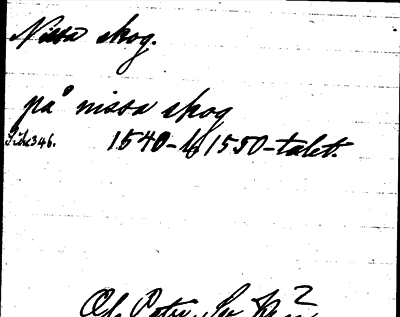 Nissa skog.
på nissa skog
346. 1540- 1550-talet.
Ol. Petri, Sv. 2